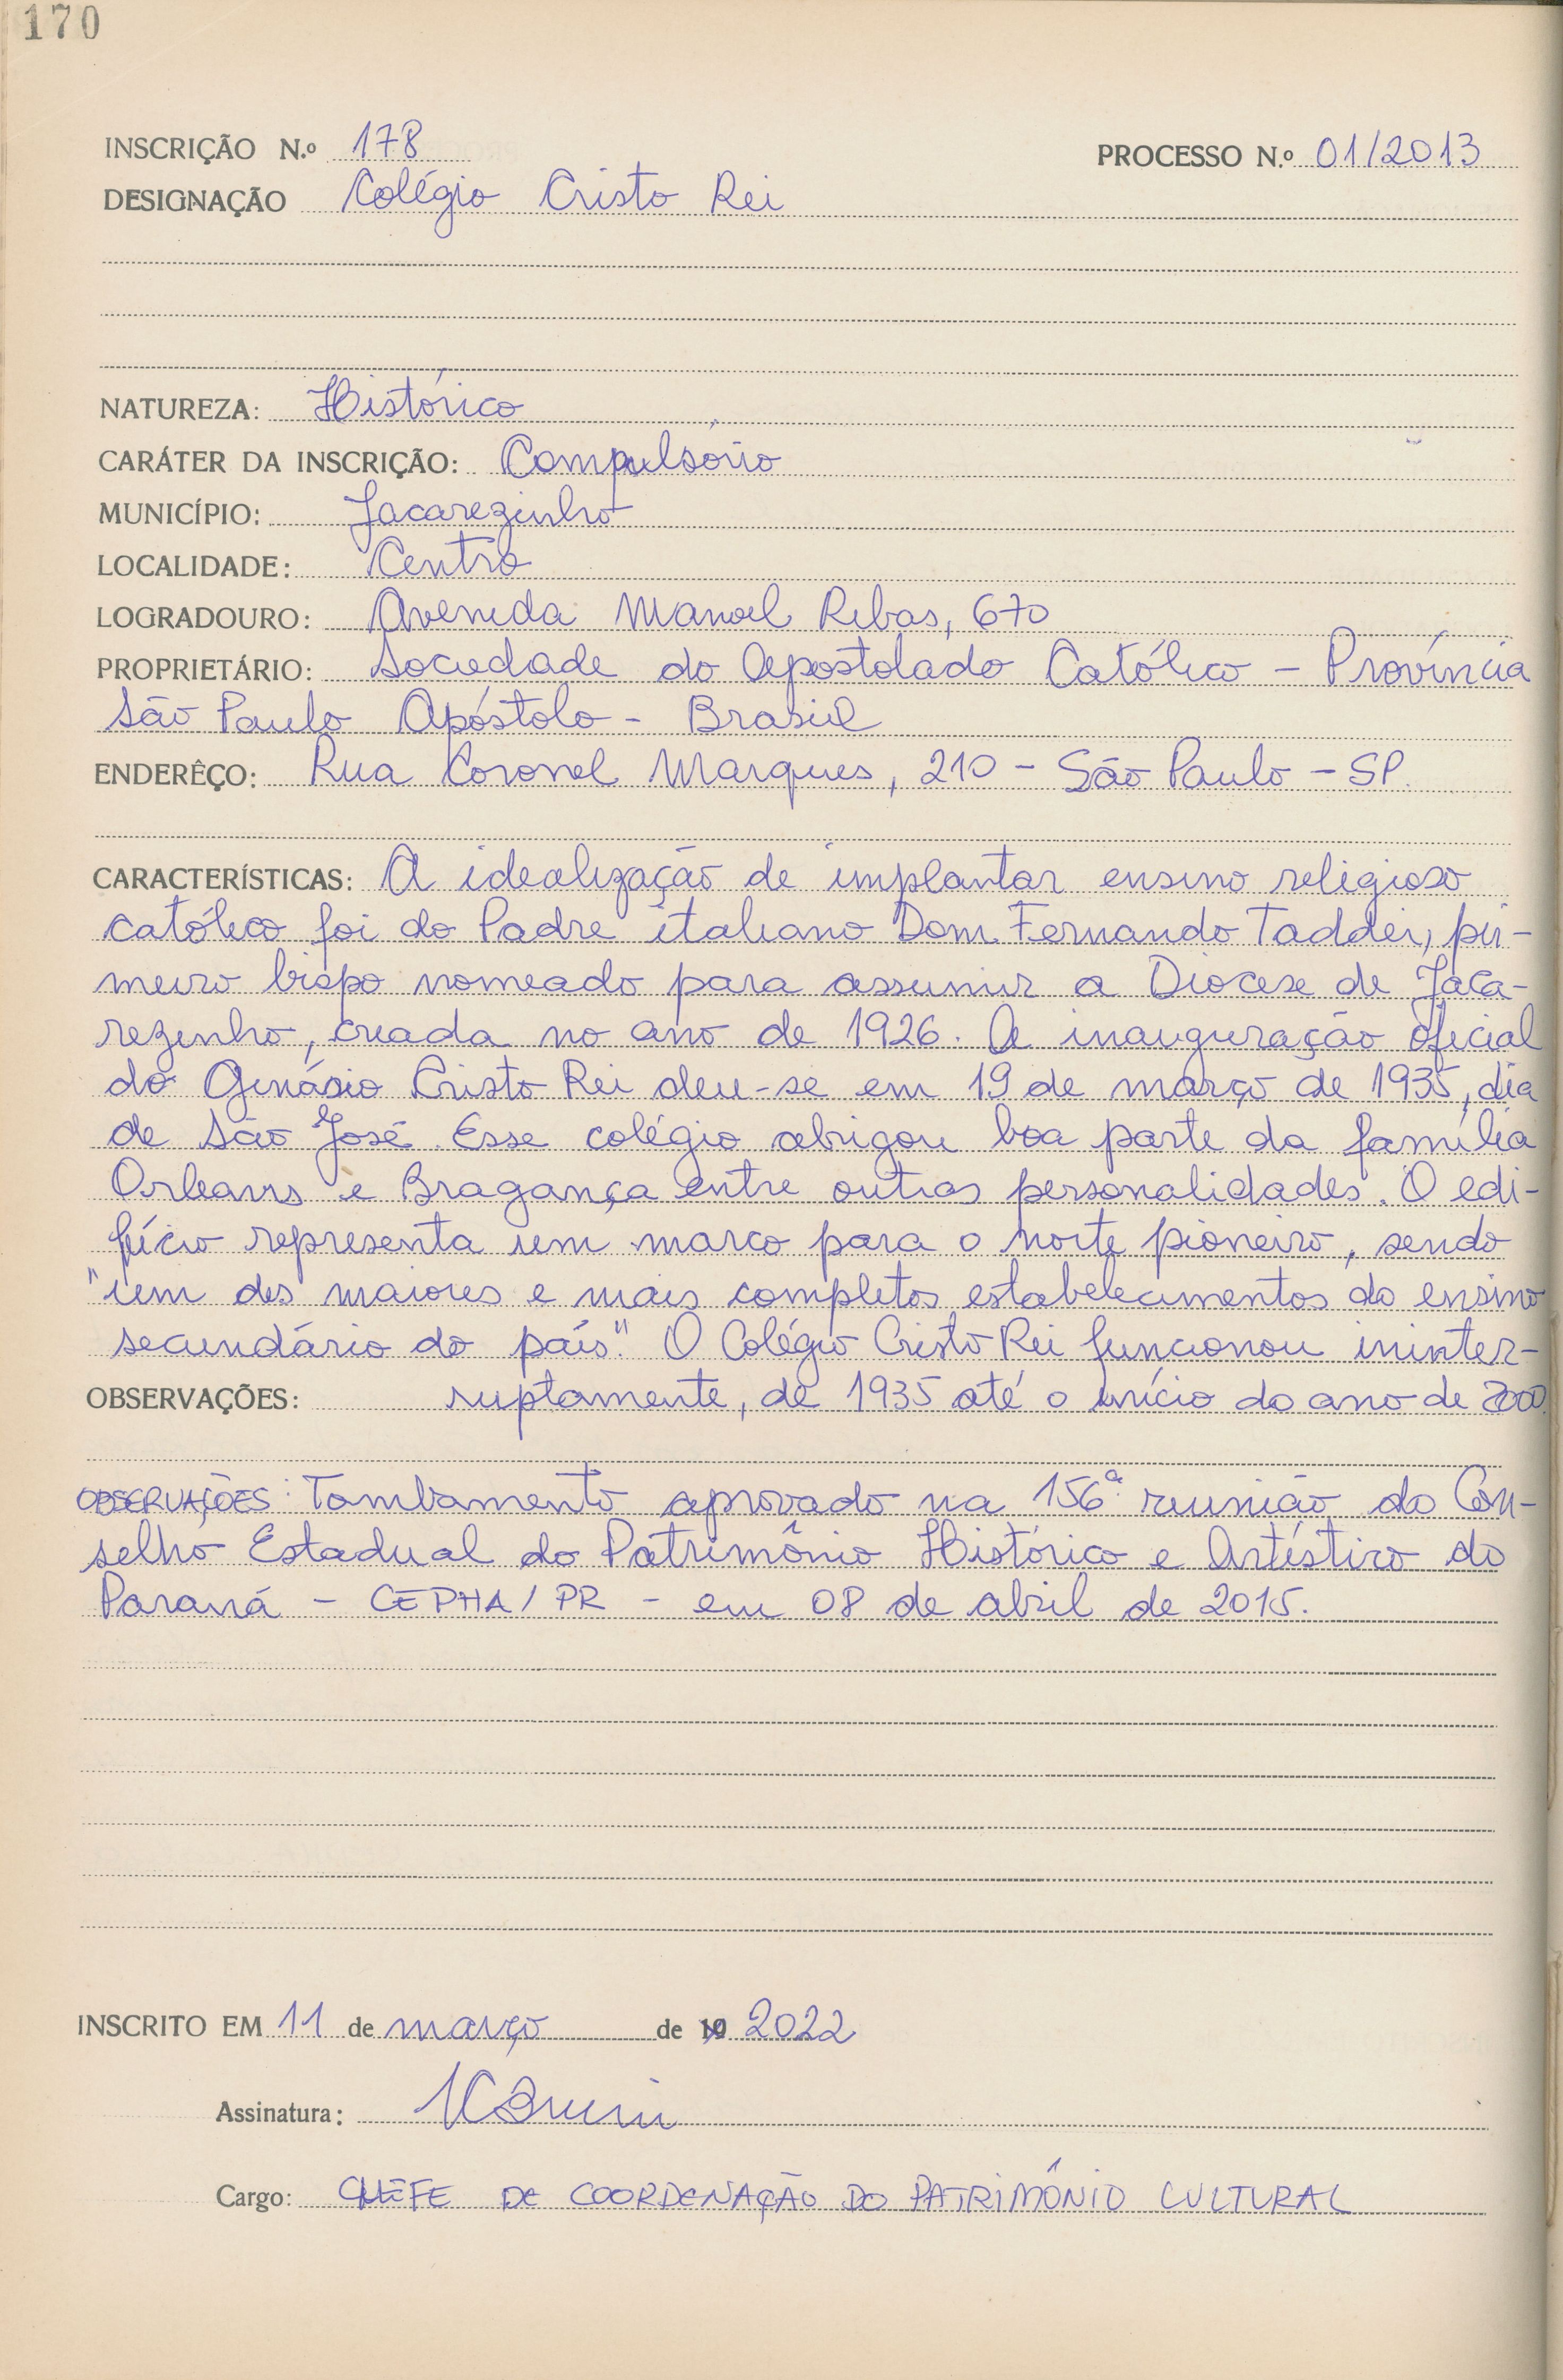 170
INSCRIÇÃO N.º 178 PROCESSO N.º 01/2013
DESIGNAÇÃO Colégio Cristo Rei
NATUREZA: Histórico
CARÁTER DA INSCRIÇÃO: Compulsório
MUNICÍPIO: Jacarezinho
LOCALIDADE: Centro
LOGRADOURO: Avenida Manoel Ribas, 670
PROPRIETÁRIO: Sociedade do Apostolado Católico - Província
São Paulo Apóstolo - Brasil
ENDERÊÇO: Rua Coronel Marques, 210 - São Paulo - SP.
CARACTERÍSTICAS: A idealização de implantar ensino religioso
católico foi do Padre italiano Dom Fernando Taddei, pri-
meiro bispo nomeado para assumir a Diocese de Jaca-
rezinho, criada no ano de 1926. A inauguração oficial
do Ginásio Cristo Rei deu-se em 19 de março de 1935, dia
de São José. Esse colégio abrigou boa parte da família
Orleans e Bragança entre outras personalidades. O edi-
fício representa um marco para o norte pioneiro, sendo
"um dos maiores e mais completos estabelecimentos do ensino
secundário do país." O Colégio Cristo Rei funcionou ininter-
OBSERVAÇÕES: ruptamente, de 1935 até o início do ano de 2000.
OBSERVAÇÕES: Tombamento aprovado na 156ª reunião do Con-
selho Estadual do Patrimônio Histórico e Artístico do
Paraná - CEPHA/PR - em 08 de abril de 2015.
INSCRITO EM 11 de março de 19 2022
Assinatura:
Cargo: CHEFE DE COORDENAÇÃO DO PATRIMÔNIO CULTURAL